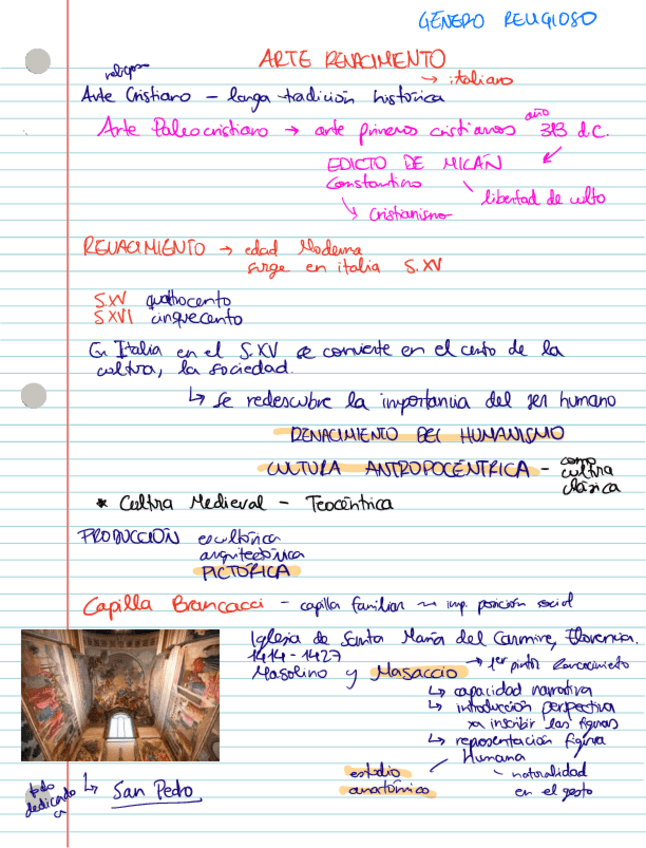 GÉNERO RELIGIOSO
ARTE RENACIMIENTO
→ italiano
religioso
Arte Cristiano – larga tradición histórica
Arte Paleocristiano → arte primeros cristianos año 313 d.C.
EDICTO DE MILÁN
Constantino
libertad de culto
↳ Cristianismo
RENACIMIENTO → edad Moderna
surge en italia S.XV
S.XV quattrocento
S.XVI cinquecento
En Italia en el S.XV se convierte en el centro de la
cultura, la sociedad.
↳ se redescubre la importancia del ser humano
RENACIMIENTO DEL HUMANISMO
CULTURA ANTROPOCÉNTRICA – como cultura clásica
* Cultura Medieval – Teocéntrica
PRODUCCIÓN escultórica
arquitectónica
PICTÓRICA
Capilla Brancacci – capilla familiar ~ imp. posición social
Iglesia de Santa María del Carmine, Florencia.
1414-1427
Masolino y Masaccio → 1er pintor Renacimiento
↳ capacidad narrativa
↳ introducción perspectiva
xa inscribir las figuras
↳ representación figura
Humana
estudio
anatómico
naturalidad
en el gesto
todo
dedicado
a
↳ San Pedro